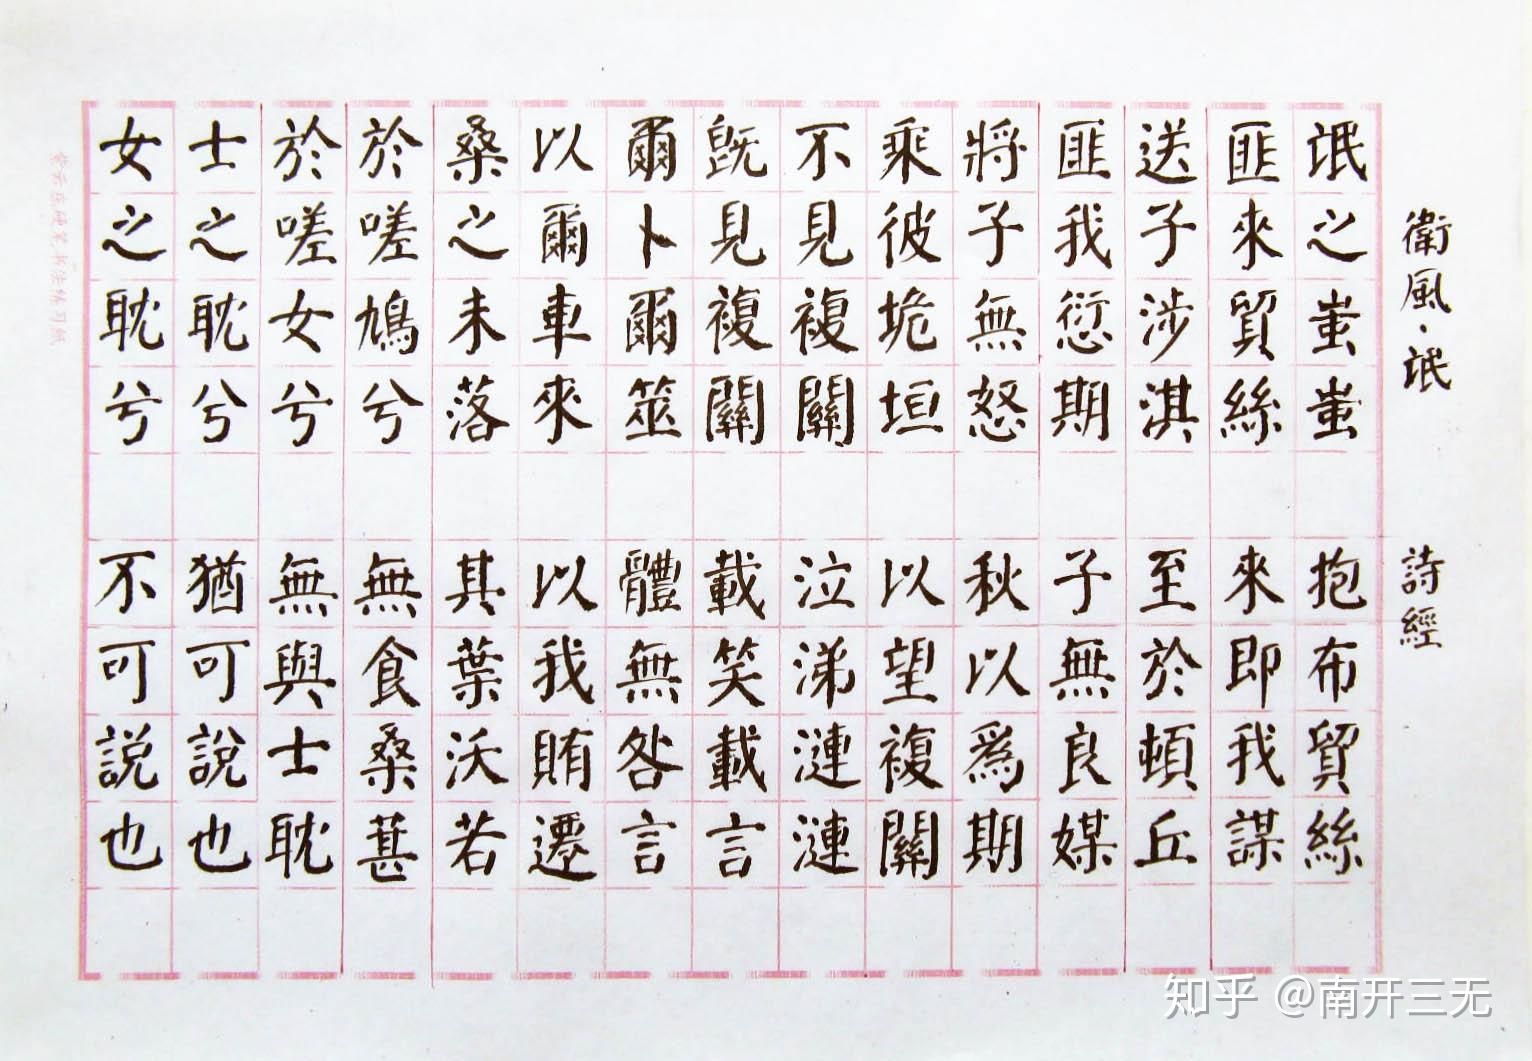 衛風·氓 詩經
氓之蚩蚩 抱布貿絲
匪來貿絲 來即我謀
送子涉淇 至於頓丘
匪我愆期 子無良媒
將子無怒 秋以爲期
乘彼垝垣 以望複關
不見複關 泣涕漣漣
既見複關 載笑載言
爾卜爾筮 體無咎言
以爾車來 以我賄遷
桑之未落 其葉沃若
於嗟鳩兮 無食桑葚
於嗟女兮 無與士耽
士之耽兮 猶可說也
女之耽兮 不可説也
知乎 @南开三无